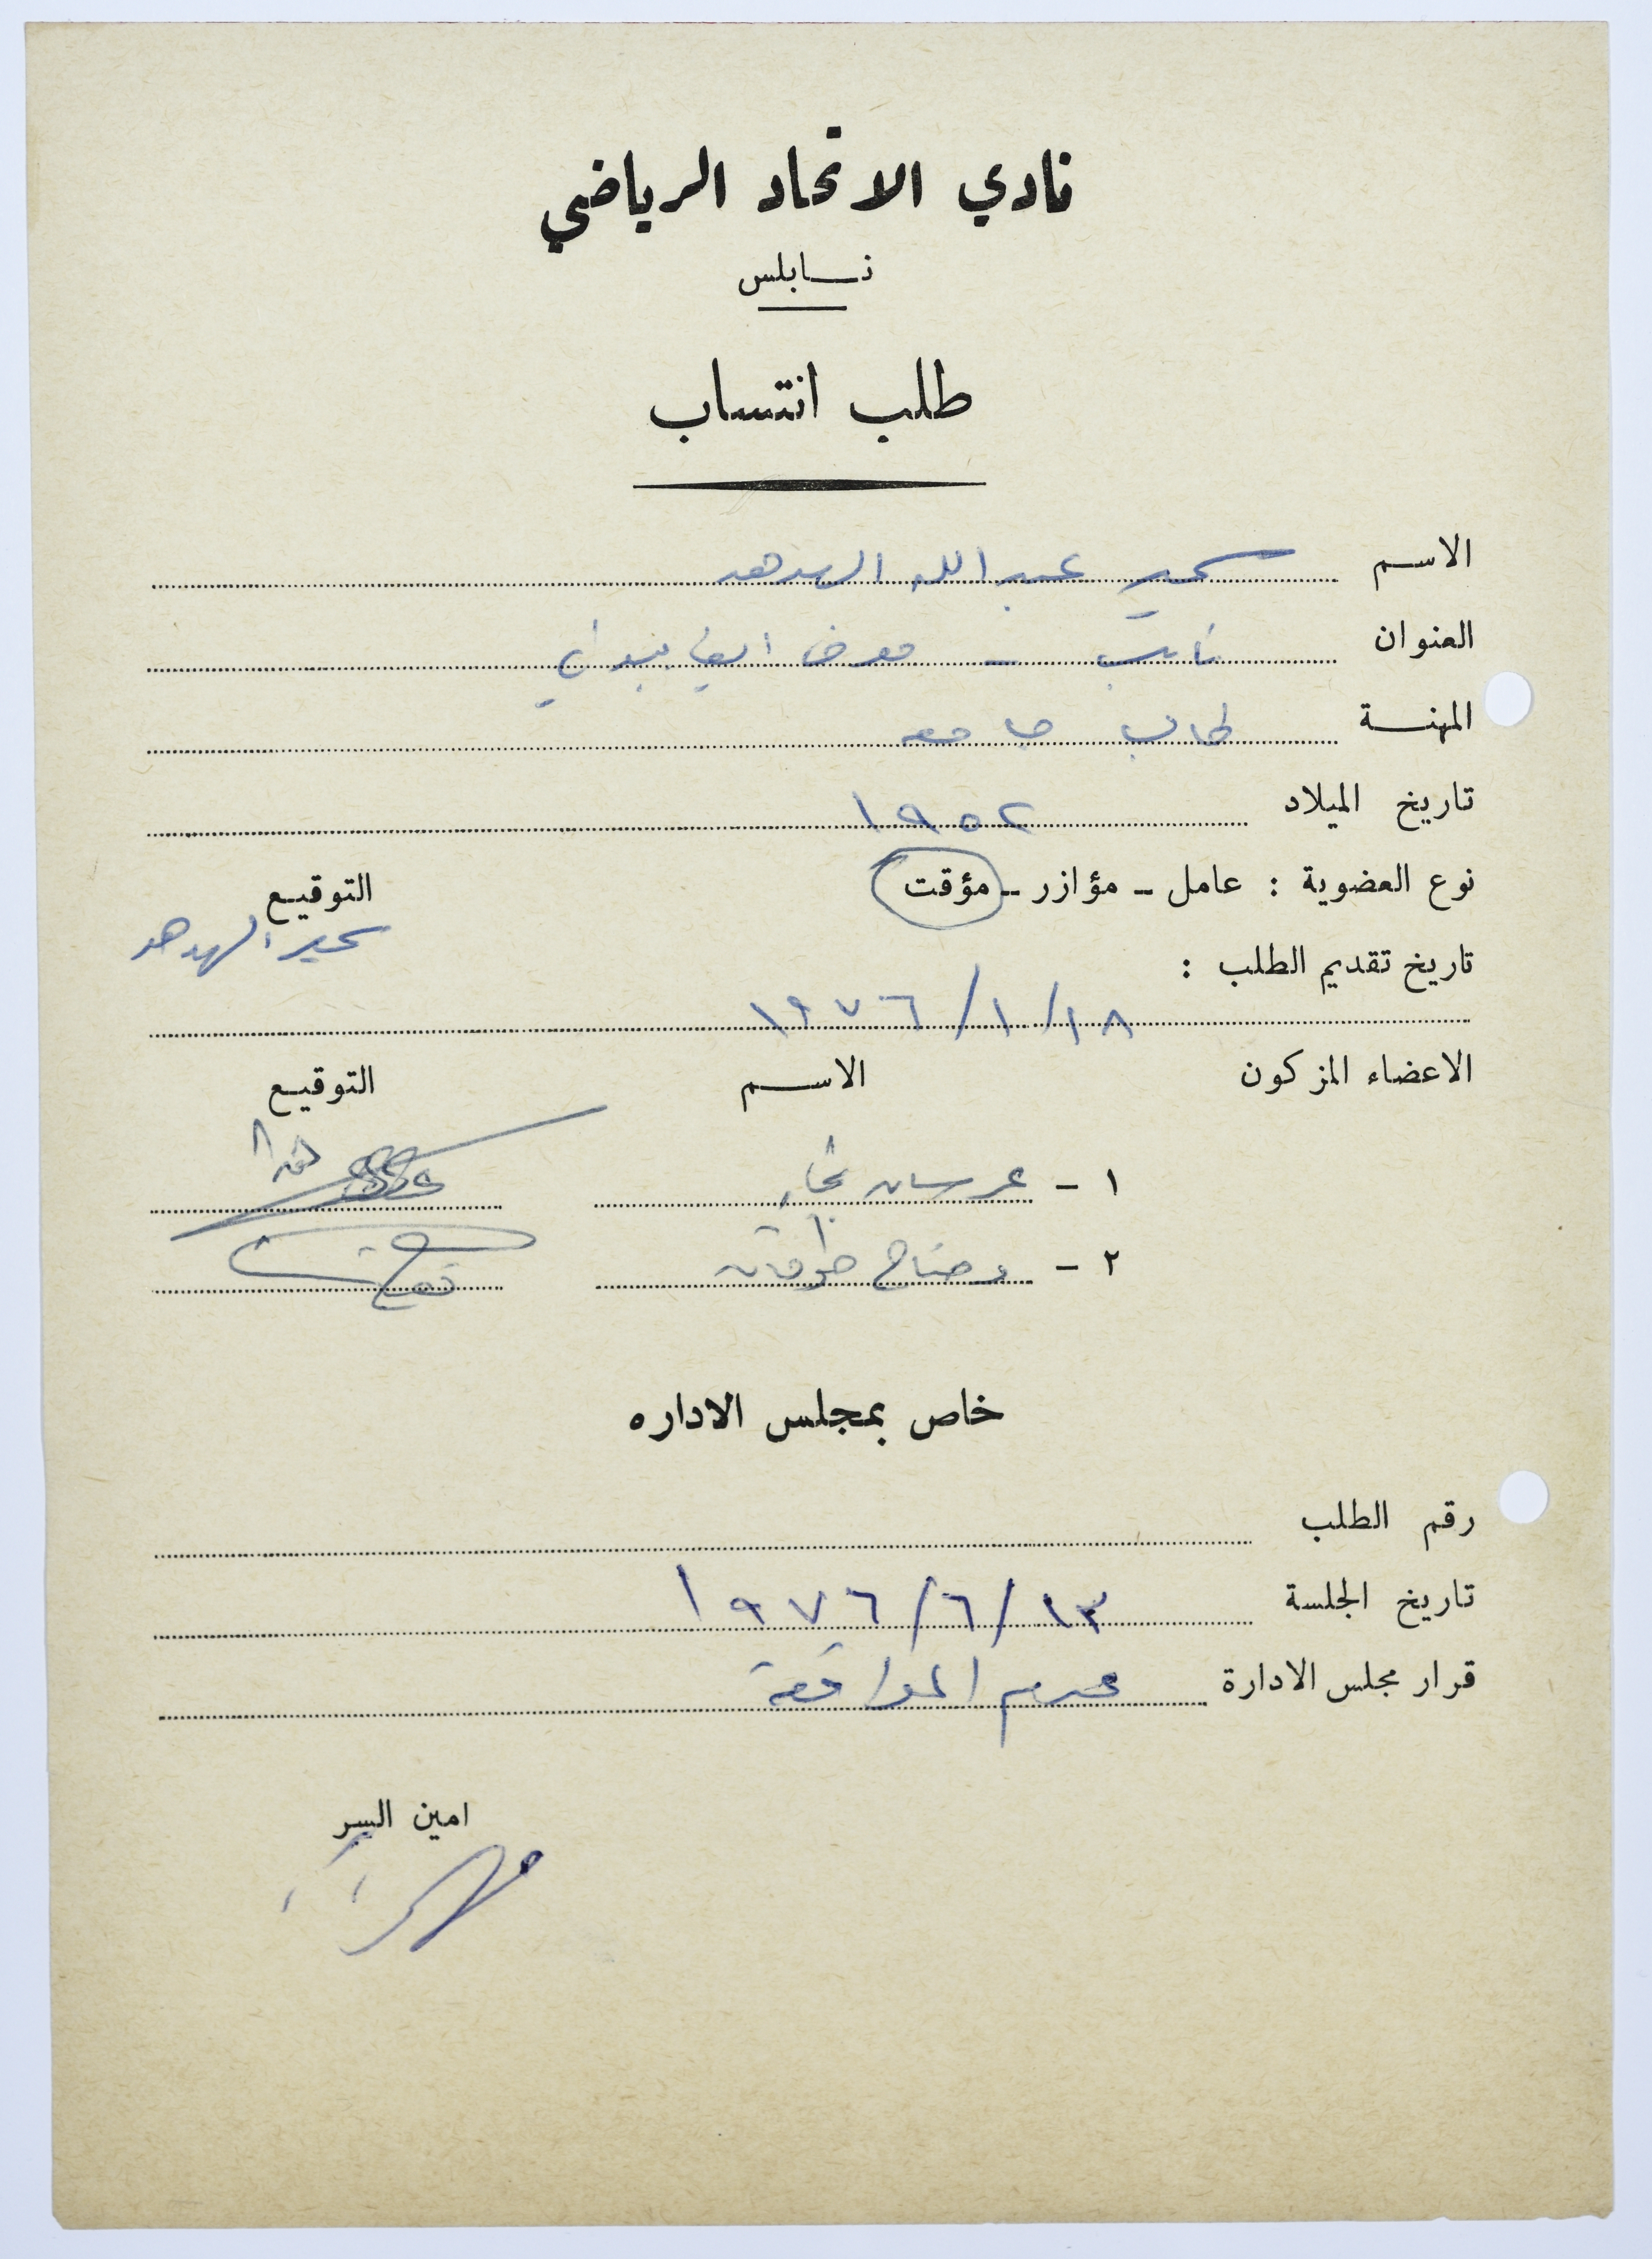 نادي الاتحاد الرياضي
نابلس
طلب انتساب
الاسم سمير عبد الله الهدهد
العنوان نابلس - معرض
المهنة طالب جامعه
تاريخ الميلاد ١٩٥٢
نوع العضوية : عامل - مؤازر - مؤقت
التوقيع
سمير الهدهد
تاريخ تقديم الطلب :
١٨/١/١٩٧٦
الاعضاء المزكون الاسم التوقيع
١ - عرسان
٢ - وضاح طوقان
خاص بمجلس الاداره
رقم الطلب
تاريخ الجلسة ١٣/٦/١٩٧٦
قرار مجلس الادارة عدم الموافقة
امين السر